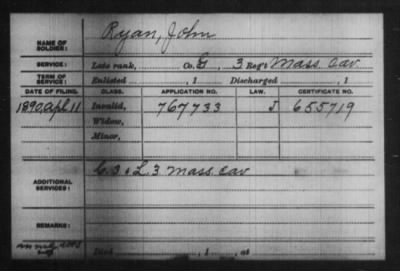 NAME OF SOLDIER: Ryan, John
SERVICE: Late rank, Co. G, 3 Reg't Mass. Cav
TERM OF SERVICE: Enlisted , 1 Discharged , 1
DATE OF FILING. CLASS. APPLICATION NO. LAW. CERTIFICATE NO.
1890, Apl 11 Invalid, 767733 J 655719
Widow,
Minor,
ADDITIONAL SERVICES: G. 3 & L. 3 Mass. Cav
REMARKS:
Died , 1 , at